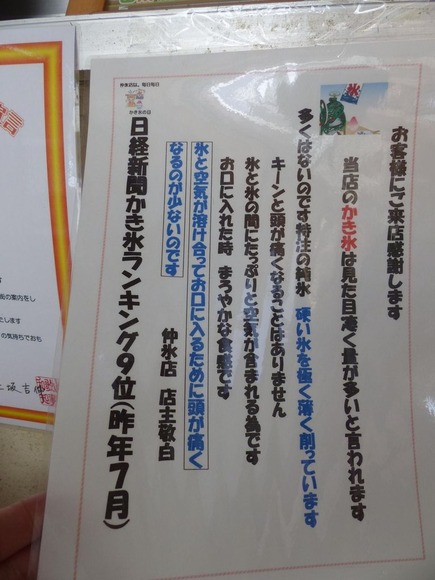 お客様にご来店感謝します
当店のかき氷は見た目凄く量が多いと言われます
多くはないのです特注の純氷 硬い氷を極く薄く削っています
キーンと頭が痛くなることはありません
氷と氷の間にたっぷりと空気が含まれる為です
お口に入れた時 まろやかな食感です
氷と空気が溶け合ってお口に入るために頭が痛く
なるのが少ないのです
仲氷店 店主敬白
日経新聞かき氷ランキング9位(昨年7月)
氷
言
街の案内をし
たします
の気持ちでおも